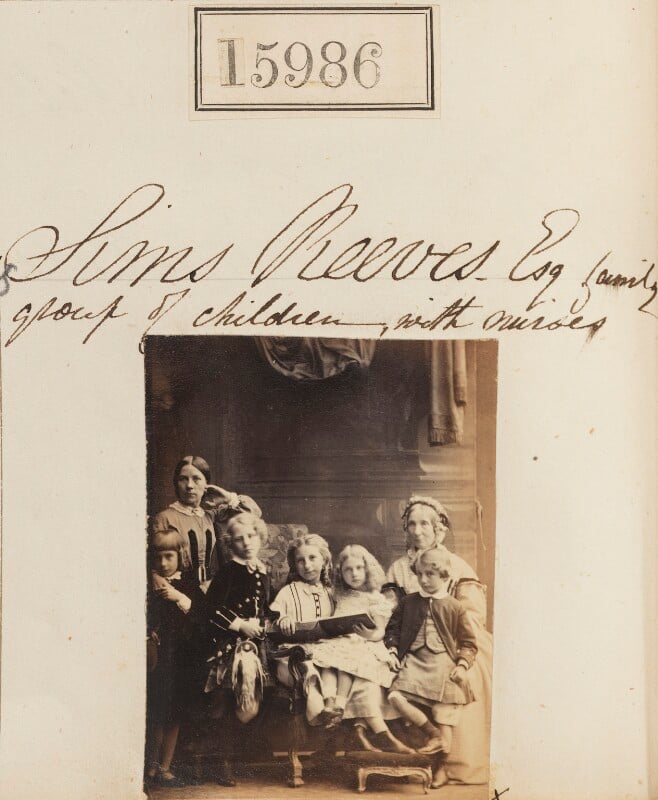 15986
Sims Reeves Esq family
group of children with nurses